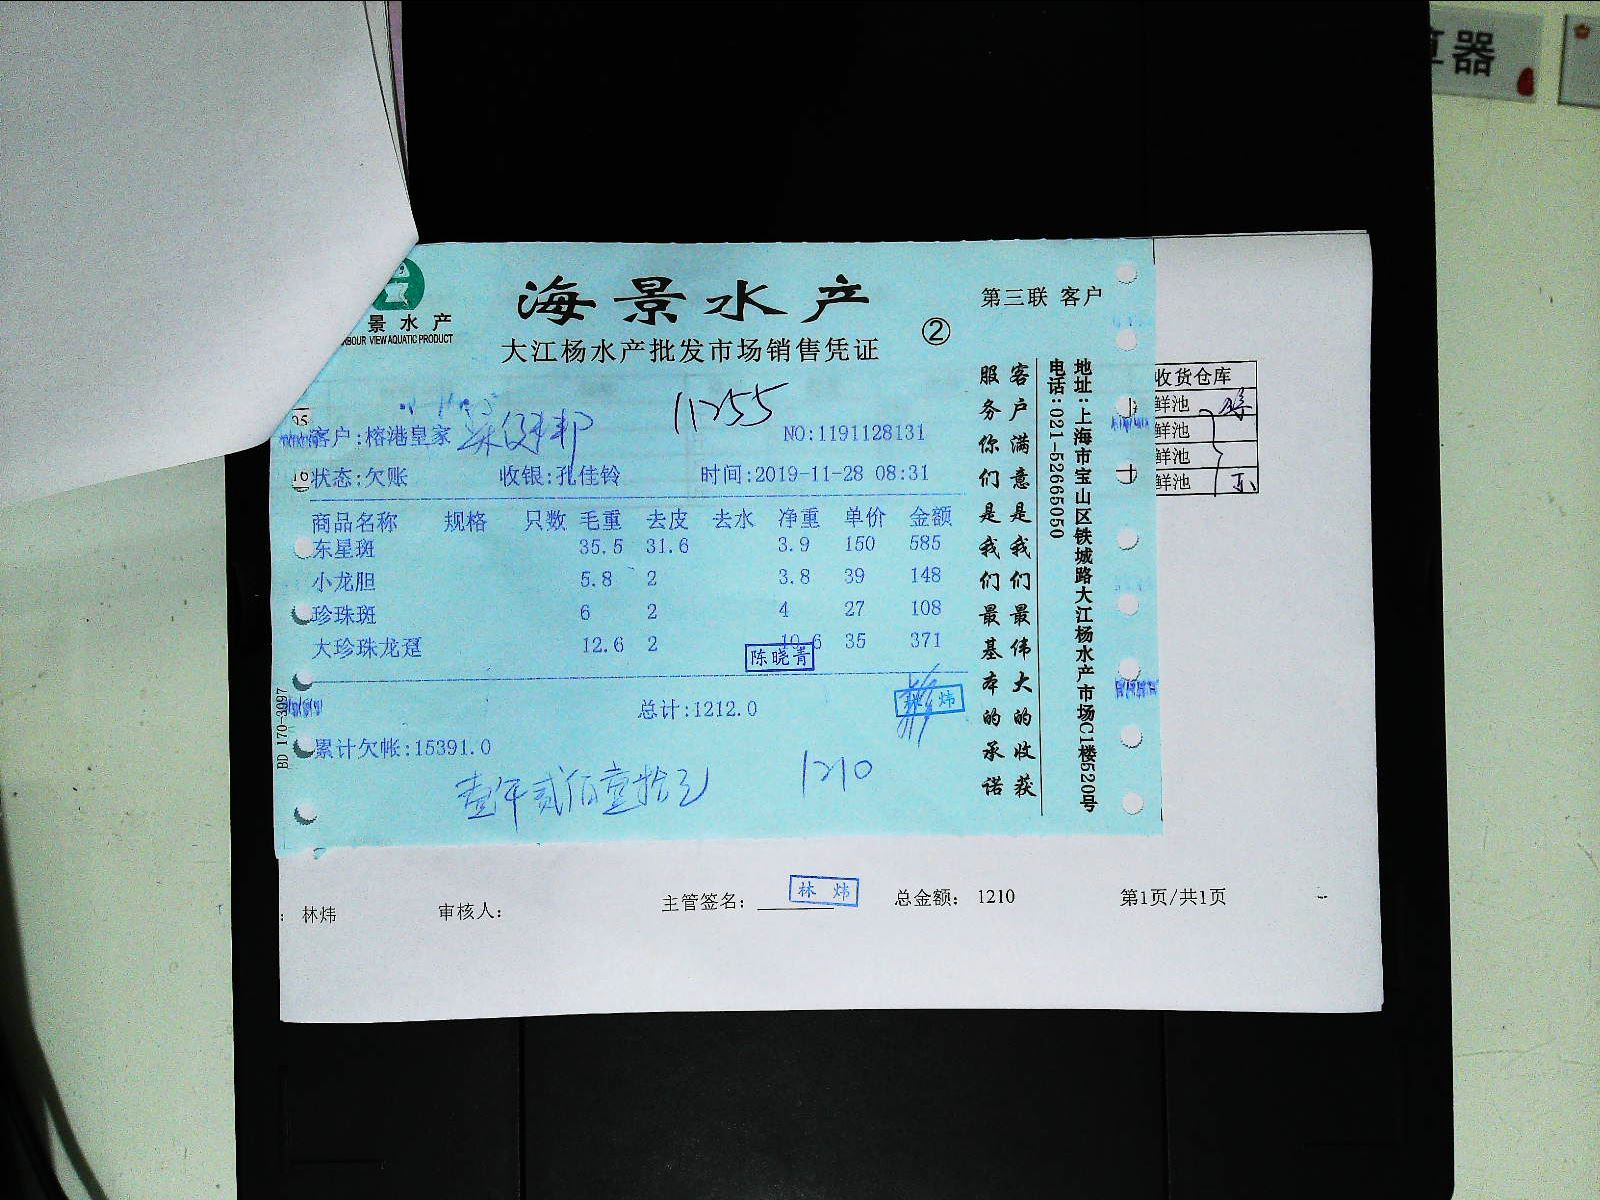 算器
海景水产
第三联 客户
景水产
VIEW AQUATIC PRODUCT
大江杨水产批发市场销售凭证
②
11255
客户:榕港皇家
NO:1191128131
状态:欠账 收银:孔佳铃 时间:2019-11-28 08:31
商品名称 规格 只数 毛重 去皮 去水 净重 单价 金额
东星斑 35.5 31.6 3.9 150 585
小龙胆 5.8 2 3.8 39 148
珍珠斑 6 2 4 27 108
大珍珠龙趸 12.6 2 10.6 35 371
陈晓菁
林炜
总计:1212.0
累计欠帐:15391.0
壹仟贰佰壹拾元
1210
客户满意是我们最伟大的收获
服务你们是我们最基本的承诺
地址:上海市宝山区铁城路大江杨水产市场C1楼520号
电话:021-52665050
BD 170-3097
收货仓库
鲜池
鲜池
鲜池
鲜池
: 林炜 审核人: 主管签名: 林炜 总金额: 1210 第1页/共1页